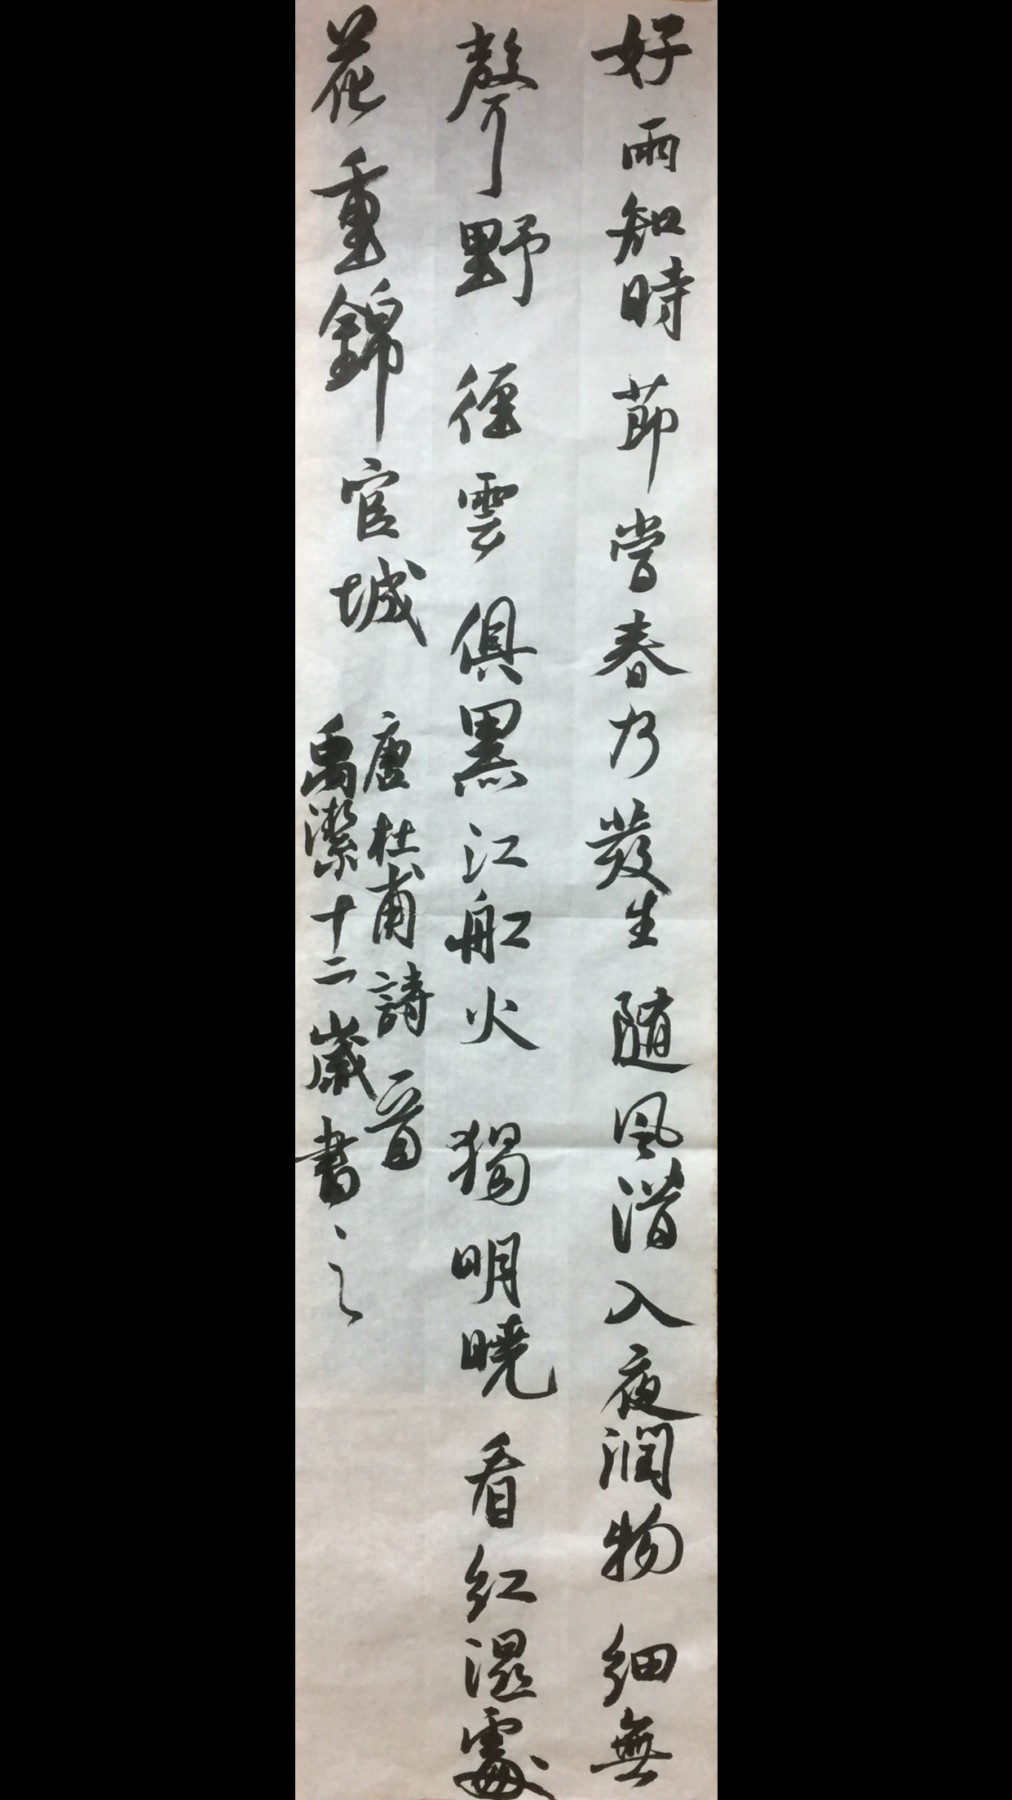 好雨知時節當春乃發生隨風潛入夜潤物細無
聲野徑雲俱黑江船火獨明曉看紅濕處
花重錦官城
唐杜甫詩一首
禹潔十二歲書之